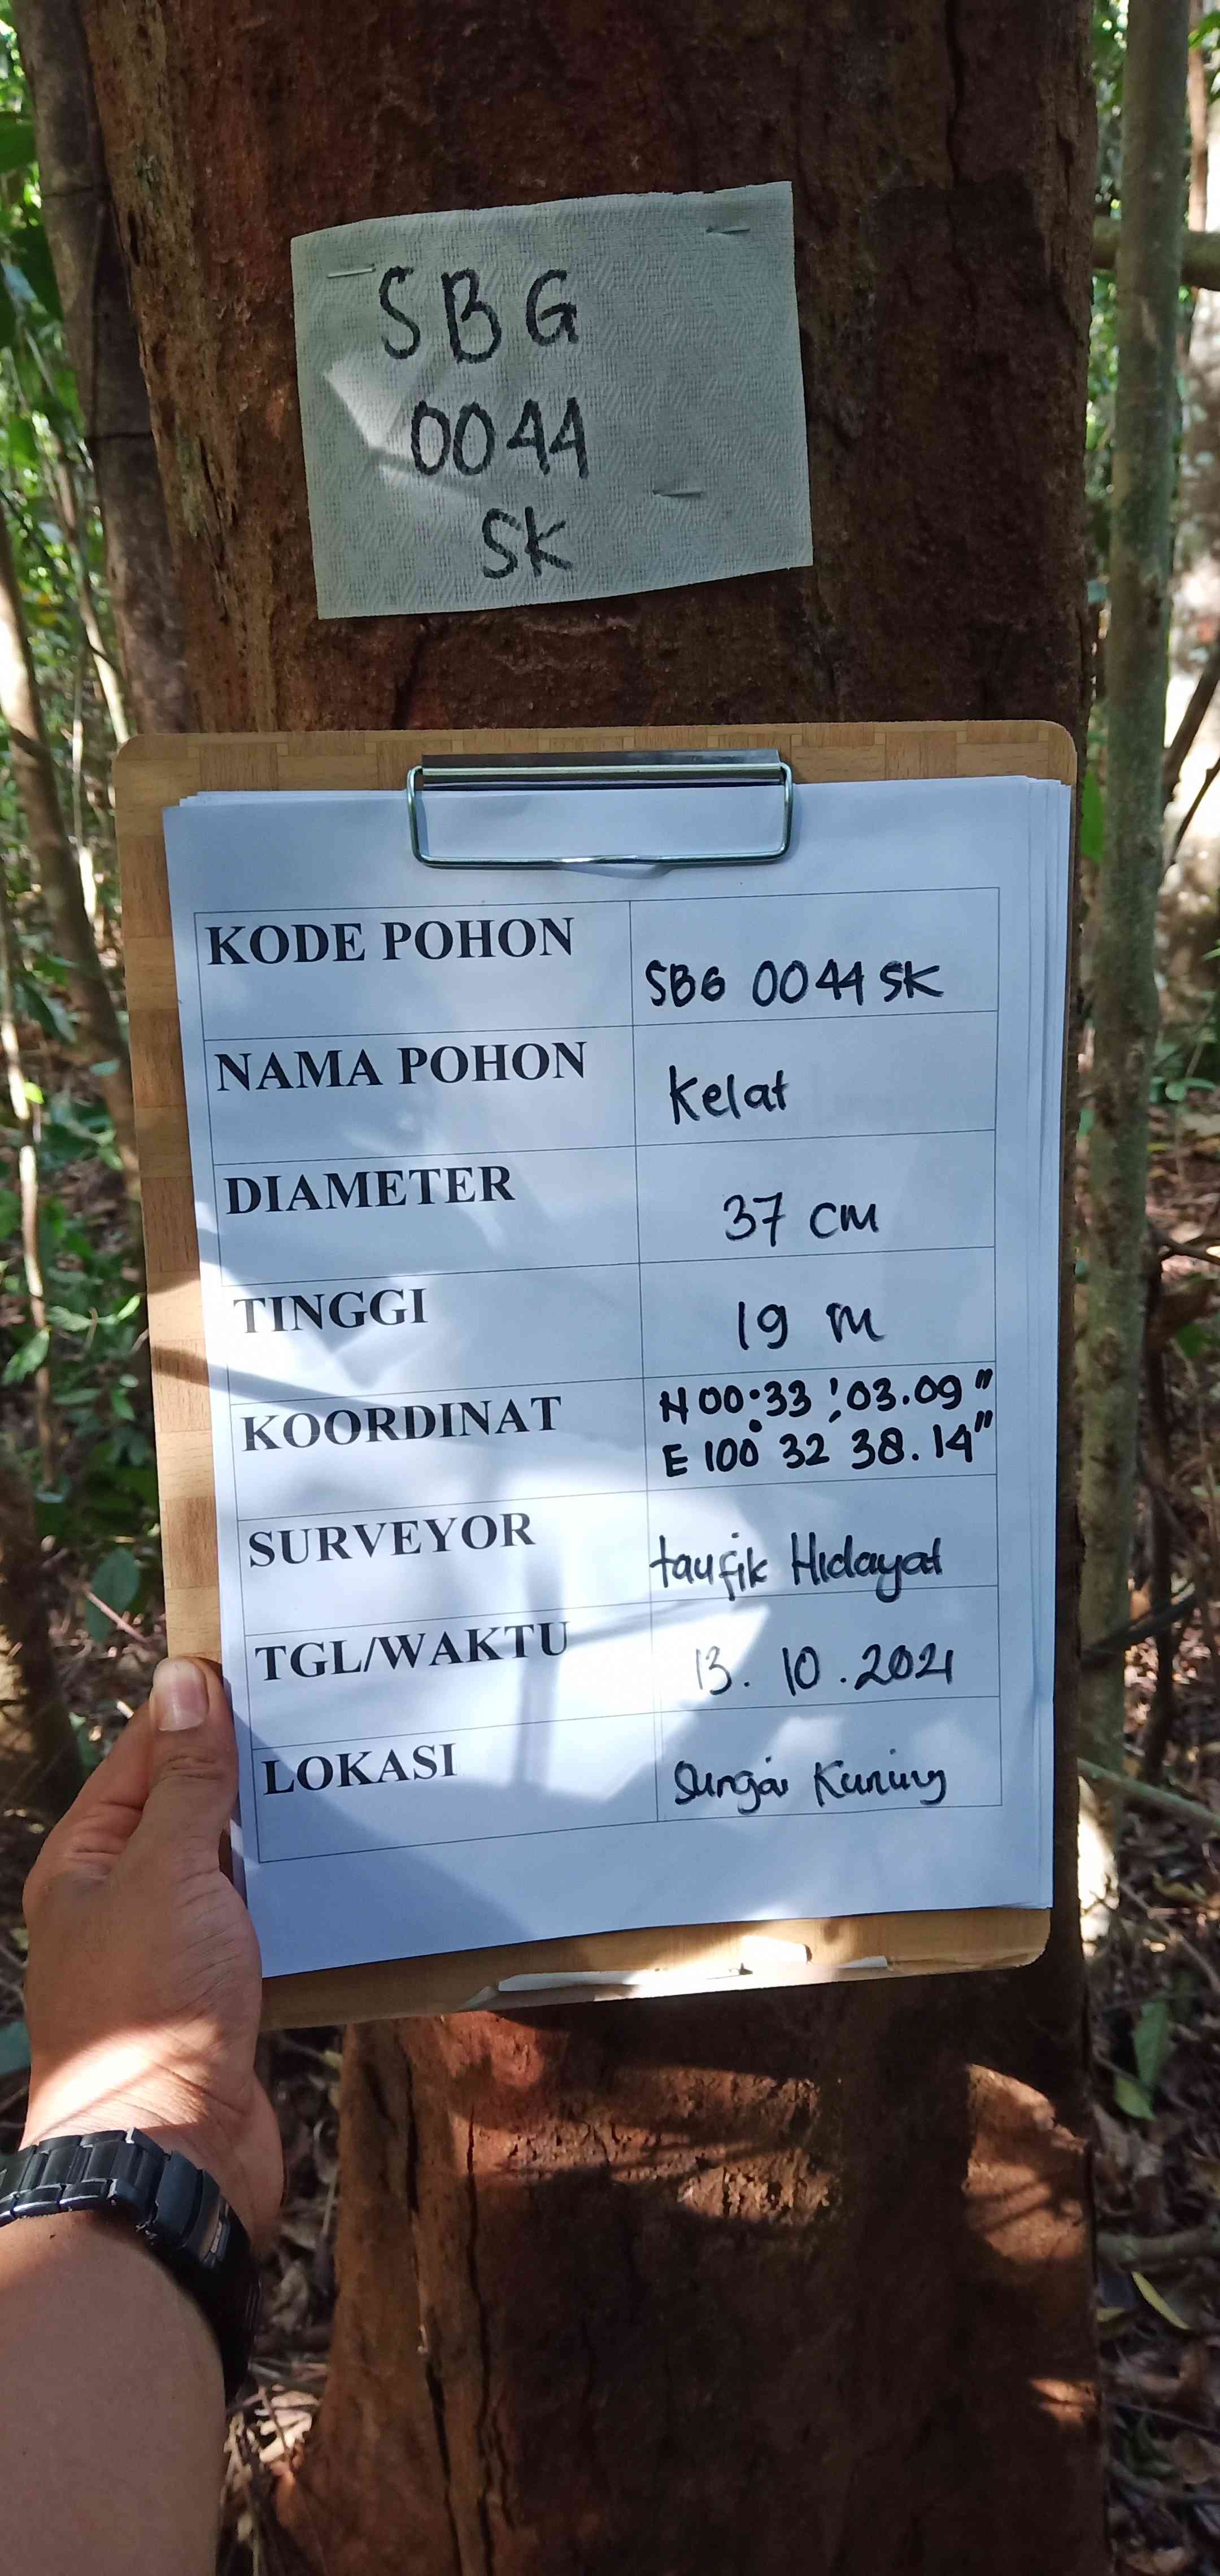 SBG
0044
SK
KODE POHON
SBG 0044 SK
NAMA POHON
Kelat
DIAMETER
37 cm
TINGGI
19 m
KOORDINAT
N 00°33 ' 03.09"
E 100° 32 ' 38.14"
SURVEYOR
taufik Hidayat
TGL/WAKTU
13. 10 . 2021
LOKASI
Sungai Kuning